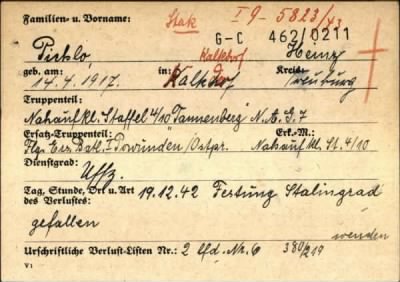 Familien- u. Vorname: Stak I 9 - 5823/43
G-C 462/0211
Pichlo, Kalkhof Heinz
geb. am: in: Kreis:
14.4.1917. Kalkhof
Truppenteil:
Nahaufkl. Staffel 4/10 Tannenberg N.A.G.7
Ersatz-Truppenteil: Erk.-M.:
Flg. Ers. Batl. I Powunden/Ostpr. Nahaufkl. St. 4/10
Dienstgrad:
Uffz.
Tag, Stunde, Ort u. Art 19.12.42 Festung Stalingrad
des Verlustes:
gefallen
wenden
Urschriftliche Verlust-Listen Nr.: 2 lfd. Nr. 6 380/219
V1